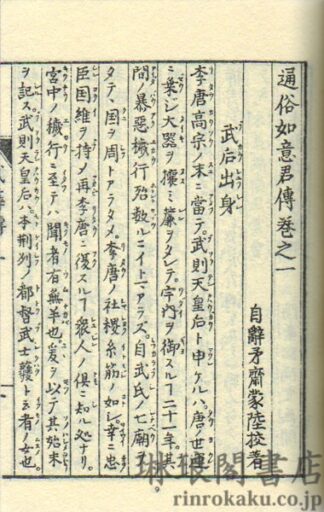 通俗如意君傳巻之一
自辭矛齋蒙陸挍著
武后出身
李唐髙宗ノ末ニ當テ。武則天皇后ト申ケルハ。唐ノ世運
ニ乗ジ大器ヲ攘ミ簾ヲタレテ。宇内ヲ御スルヿ二十一年。其
間ノ暴惡穢行殆數ルニイトマアラズ。自武氏ノ七廟ヲ
タテ。国ヲ周トアラタメ。李唐ノ社稷糸筋ノ如シ。幸ニ忠
臣国維ヲ持メ再李唐ニ復スルヿ衆人ノ倶ニ知ル処ナリ。
宮中ノ穢行ニ至テハ聞者有無半也。爰ヲ以テ其始末
ヲ記ス。武則天皇后ハ。本荊州ノ都督武士彠ト云者ノ女也
9
琳琅閣書店
rinrokaku.co.jp